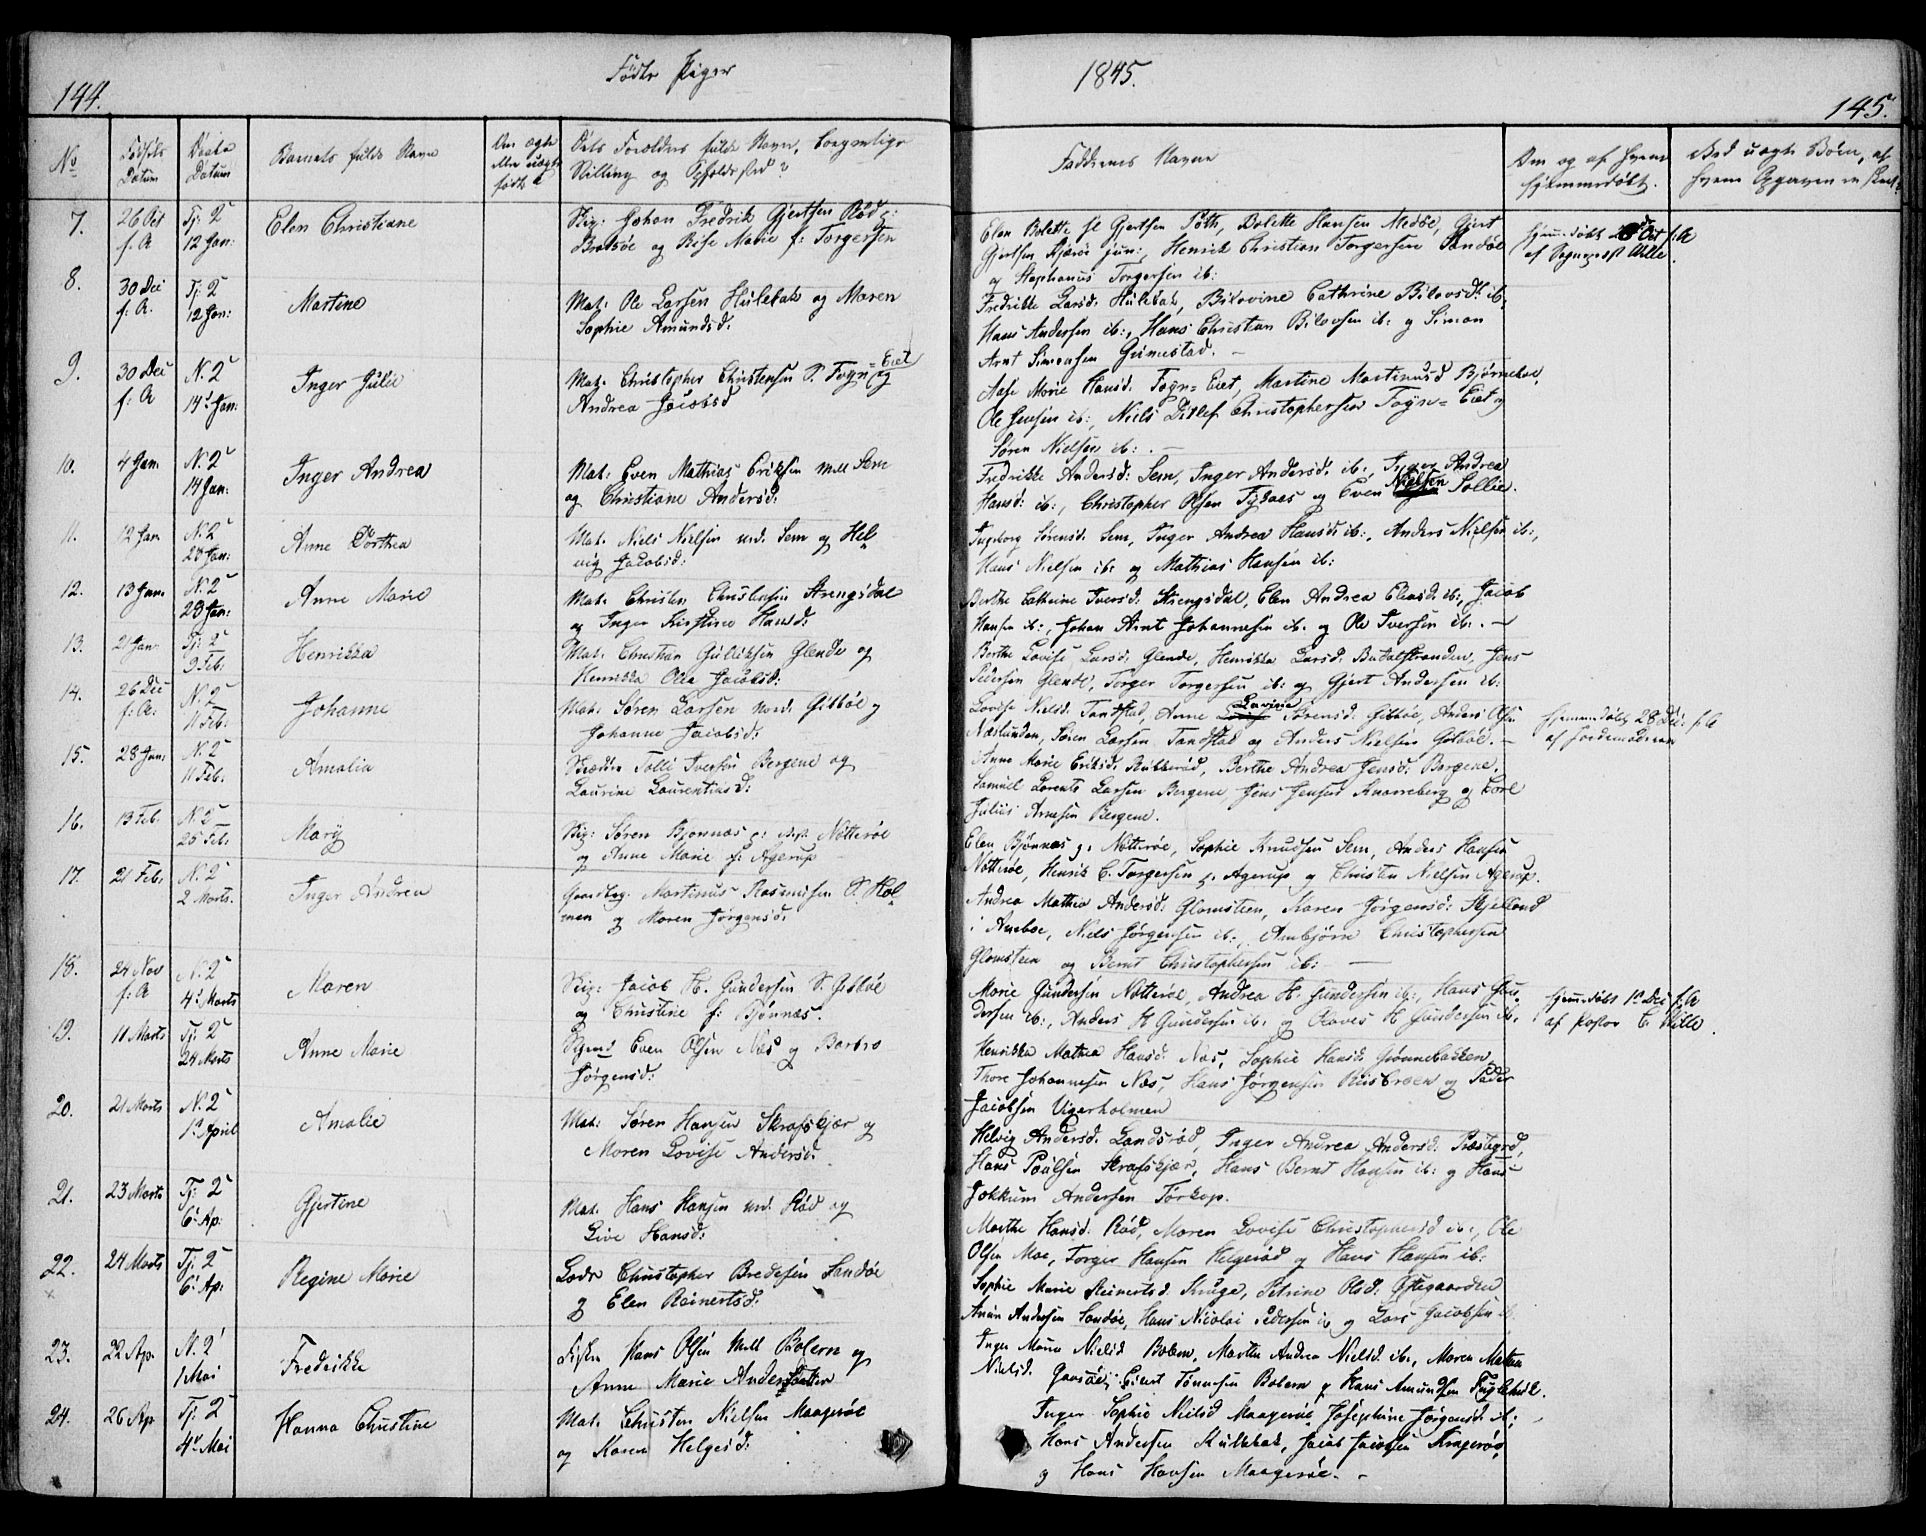 144.
Fødte Piger
1845.
145.
No
Fødsels Datum
Døbte Datum
Barnets fulde Navn
Om ægte eller uægte født?
Dets Forældres fulde Navn, borgerlige Stilling og Opholdssted?
Faddernes Navne
Om og af hvem hjemmedøbt.
Ved uægte Børn, af hvem Opgaven er skeet
7. 26 Oct f. A Tj: 2 12 Jan: Elen Christiane
Skip: Johan Fredrik Gjertsen Rød
Bratsøe og Marie f: Torgersen
Elen Bolette Gjertsen Bolette Hansen Medøe, Gjert
Gjertsen jun:, Henrik Christian Torgersen Sandøe
og Stephanus Torgersen ib:
Hjem: døbt Oct f: A
af Sognepst Wille.
8. 30 Dec f: A. Tj: 2 12 Jan: Martine
Mat: Ole Larsen Hulebak og Maren
Sophie Amundsd:
Fredrikke Larsd: Hulebak, Cathrine ib.
Hans Andersen ib:, Hans Christian ib: og Simon
Arnt Simonsen Gunestad. –
9. 30 Dec f: A N. 2 14 Jan: Inger Julie
Mat: Christopher Christensen S. Føyn=Eiet og
Andrea Jacobsd
Aase Marie Hansd: Føyn=Eiet, Martine Martinusd
Ole Jensen ib:, Niels Ditlef Christophersen Føyn=Eiet og
Søren Nielsen ib: . –
10. 4 Jan. N. 2 14 Jan: Inger Andrea
Mat: Even Mathias Eriksen mell Sem
og Christiane Andersd:
Fredrikke Andersd: Sem, Inger Andersd: ib:, Inger Andrea
Hansd: ib:, Christopher Olsen og Even Nielsen Sollie.
11. 12 Jan N. 2 28 Jan: Anne Dorthea
Mat. Niels Nielsen ned. Sem og Hel
vig Jacobsd:
Ingeborg Sørensd. Sem, Inger Andrea Hansd: ib:, Anders Nielsen ib:,
Hans Nielsen ib: og Mathias Hansen ib:
12. 13 Jan. N. 2 28 Jan: Anne Marie
Mat. Christen Christensen Strengsdal
og Inger Kirstine Hansd:
Berthe Cathrine Iversd. Strengsdal, Elen Andrea Eliasd: ib:, Jacob
Hansen ib:, Johan Arnt Johannesen ib. og Ole Iversen ib: . –
13. 21 Jan: Tj: 2 9 Feb: Henrikka
Mat: Christian Gulliksen Glende og
Henrikka Olea Jacobsd:
Berthe Lovise Larsd: Glende, Henrikka Larsd: Jens
Pedersen Glende, Torger Torgersen ib: og Gjert Andersen ib:
14. 26 Dec f: A: N. 2 11 Feb: Johanne
Mat: Søren Larsen nord. Gibbøe og
Johanne Jacobsd:
Lovise Nielsd: Tandstad, Anne Lovisie Sørensd: Gibbøe, Anders Olsen
Næslunden, Søren Larsen Tandstad og Anders Nielsen Gibbøe. –
Hjemmedøbt 28 Dec: f: A
af Jordemoderen
15. 28 Jan: N. 2 11 Feb: Amalia
Skrædder Tolle Iversen Bergene og
Laurine Laurentiusd:
Anne Marie Eriksd: Berthe Andrea Jensd: Bergene,
Samuel Lorents Larsen Bergene Jens Jensen Knarreberg og Carl
Julius Arnesen Bergene.
16. 13 Feb. N. 2 25 Feb: Mary
Skip: Søren Bjønnæs Nøtterøe
og Anne Marie f: Agerup
Elen Bjønnæs Nøtterøe, Sophie Knudsen Sem, Anders Hansen
Nøtterøe, Henrik C. Torgersen Agerup og Christen Nielsen Agerup.
17. 21 Feb: N. 2 2 Marts. Inger Andrea
Gaardbrg. Martinus Rasmussen S. Hol
men og Maren Jørgensd:
Andrea Mathea Andersd: Glomsteen, Karen Jørgensd: Skjelland
i Aneboe, Niels Jørgensen ib:, Christophersen
Glomsteen og Bernt Christophersen ib: –
18. 24 Nov f: A N. 2 4 Marts Maren
Skip: Jacob H. Gundersen S. Gibbøe
og Christine f: Bjønnæs.
Marie Gundersen Nøtterøe, Andrea H. Gundersen ib:, Hans Gun
dersen ib:, Anders H Gundersen ib: og Olaves H Gundersen ib.
Hjem: døbt 1 Dec f: A
af Pastor C. Wille.
19. 11 Marts Tj: 2 24 Marts Anne Marie
Even Olsen Næs og Barbro
Jørgensd:
Henrikka Mathea Hansd: Næs, Sophie Hansd: Grønnebakken,
Thore Johannesen Næs, Hans Jørgensen og Peder
Jacobsen Vigerholmen
20. 21 Marts N. 2 1 April Amalie
Mat: Søren Hansen Skrafskjær og
Maren Lovise Andersd:
Helvig Andersd: Landsrød, Inger Andrea Andersd: Præstegrd,
Hans Poulsen Skrafskjær, Hans Bernt Hansen ib: og Hans
Jokkum Andersen Torkop.
21. 23 Marts Tj: 2 6 Ap: Gjertine
Mat. Hans Hansen ned. Rød og
Live Hansd:
Marthe Hansd: Rød, Maren Lovise Christophersd ib:, Ole
Olsen Moe, Torger Hansen Helgerød og Hans Hansen ib:
22. 24 Marts Tj: 2 6 Ap: Regine Marie
Lods Christopher Bredesen Sandøe
og Elen Reinertsd:
Sophie Marie Reinertsd. Kruge, Petrine Olsd: Østegaarden
Andersen Sandøe, Hans Nicolai Pedersen ib og Lars Jacobsen ib.
23. 22 Ap. N. 2 1 Mai Fredrikke
Fisker Hans Olsen Mell Bolern og
Anne Marie Andersdatter
Inger Maria Nielsd Bolern, Marthe Andrea Nielsd. ib:, Maren Mathea
Nielsd. Einert Tønnesen Bolern og Hans Amundsen Fuglehuk.
24. 26 Ap Tj: 2 4 Mai Hanna Christine
Mat: Christen Nielsen Maagerøe
og Karen Helgesd:
Inger Sophie Nielsd Maagerøe, Josephine Jørgensd: ib:,
Hans Andersen Hulebak, Jacob Jacobsen
og Hans Hansen Maagerøe. –